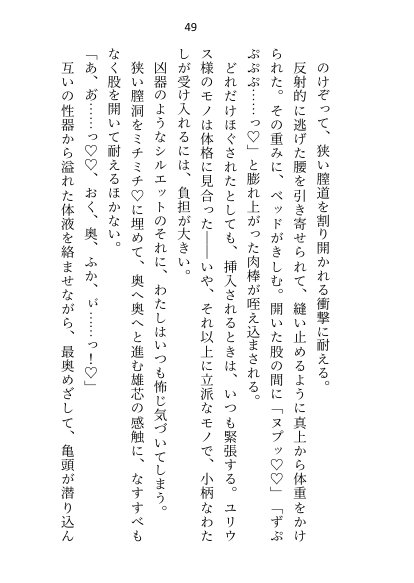 49
のけぞって、狭い膣道を割り開かれる衝撃に耐える。
反射的に逃げた腰を引き寄せられて、縫い止めるように真上から体重をかけ
られた。その重みに、ベッドがきしむ。開いた股の間に「ヌプッ♡♡」「ずぷ
ぷぷぷ……っ♡」と膨れ上がった肉棒が咥え込まされる。
どれだけほぐされたとしても、挿入されるときは、いつも緊張する。ユリウ
ス様のモノは体格に見合った――いや、それ以上に立派なモノで、小柄なわた
しが受け入れるには、負担が大きい。
凶器のようなシルエットのそれに、わたしはいつも怖じ気づいてしまう。
狭い膣洞をミチミチ♡に埋めて、奥へ奥へと進む雄芯の感触に、なすすべも
なく股を開いて耐えるほかない。
「あ、あ゛……っ♡♡、おく、奥、ふか、ぃ……っ！♡」
互いの性器から溢れた体液を絡ませながら、最奥めざして、亀頭が潜り込ん